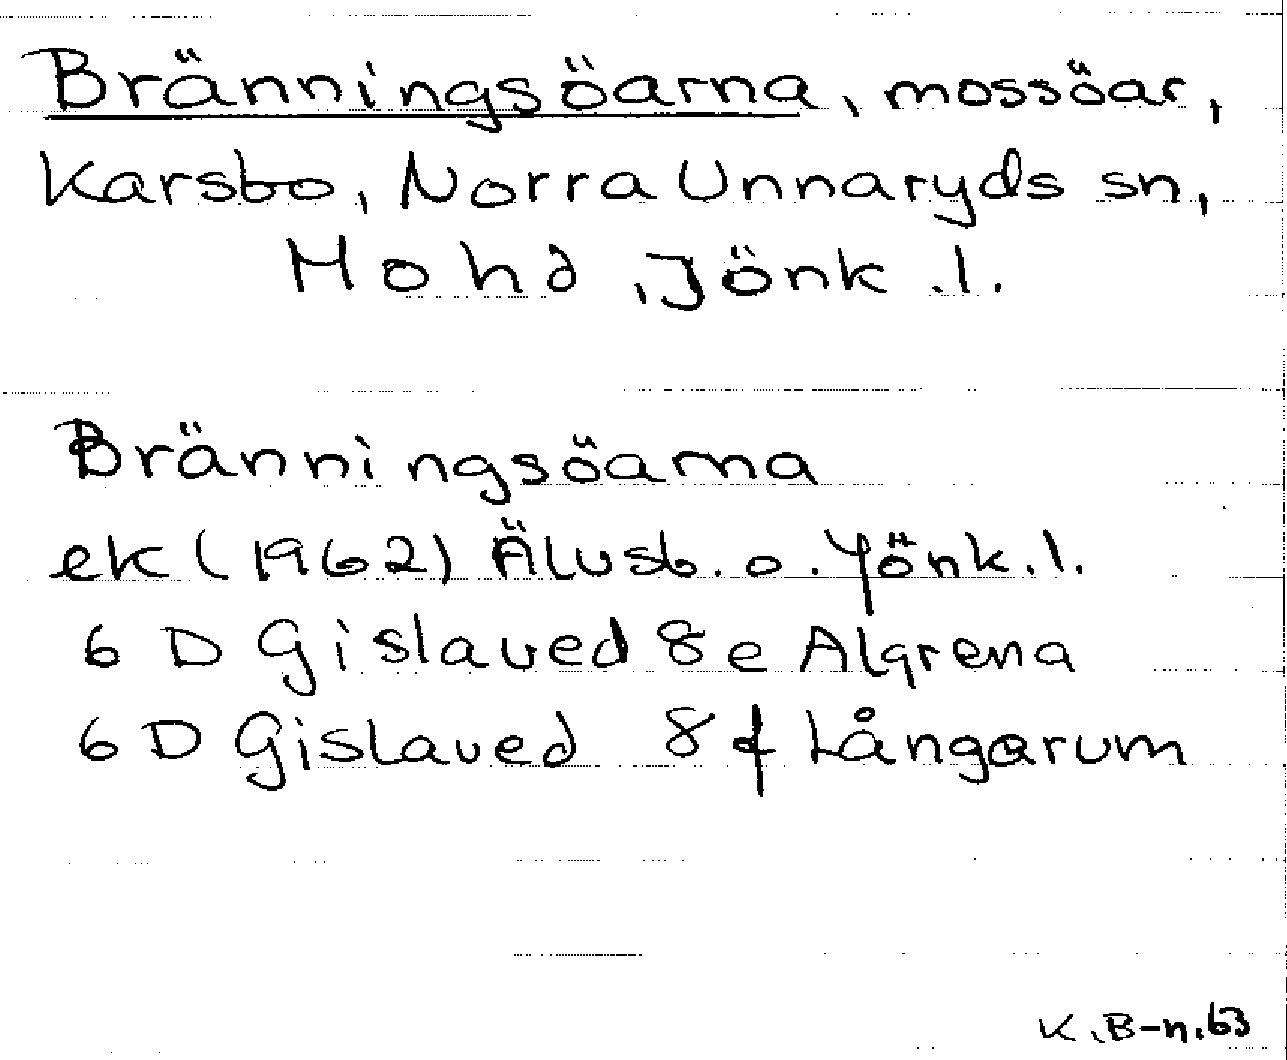 Bränningsöarna, mossöar,
Karsbo, Norra Unnaryds sn,
Mo hd, Jönk.l.
Bränningsöarna
ek (1962) Älvsb. o. Jönk.l.
6 D Gislaved 8 e Algrena
6 D Gislaved 8 f Långarum
K.B-n.63